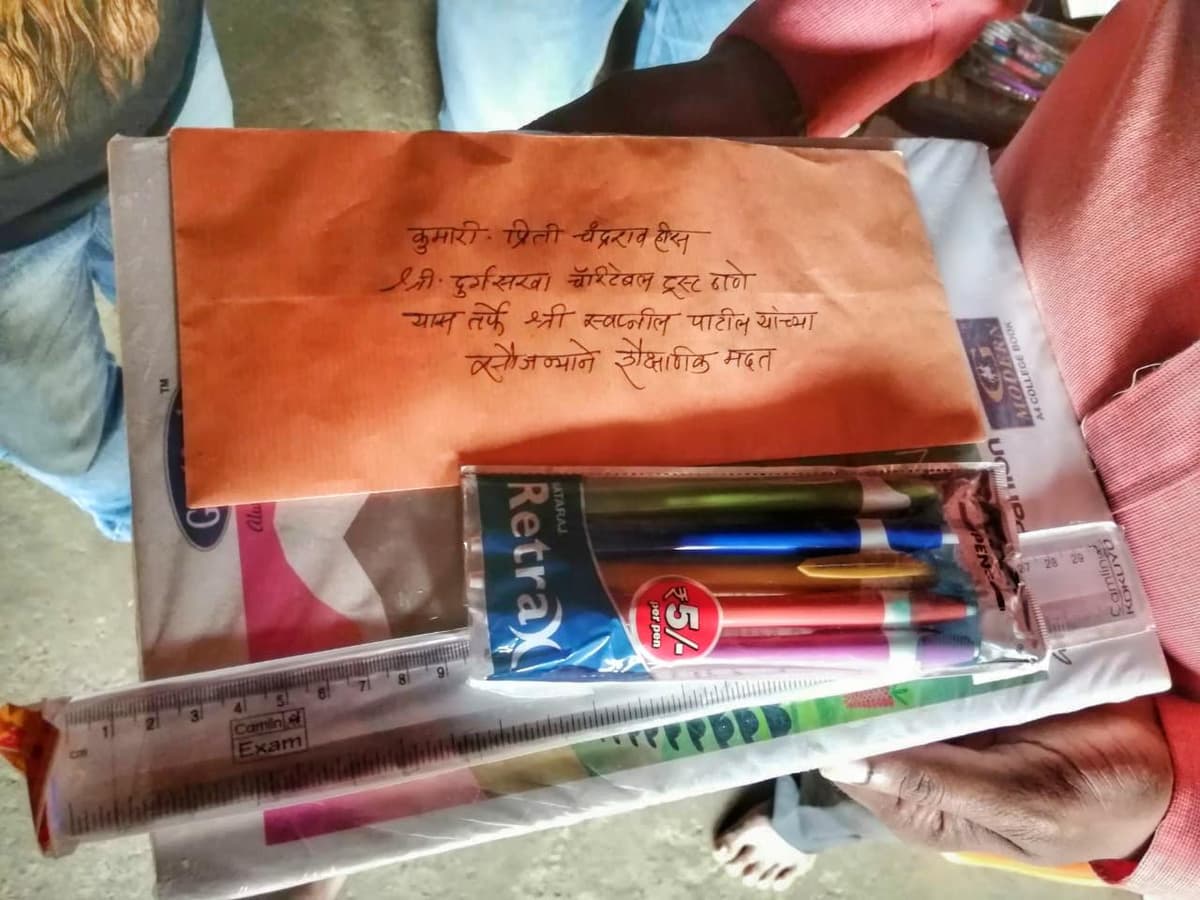 कुमारी. प्रिती चंद्रराव हीस
श्री. दुर्गसखा चॅरिटेबल ट्रस्ट ठाणे
यास तर्फे श्री स्वप्नील पाटील यांच्या
सौजन्याने शैक्षणिक मदत
MODERN
A4 COLLEGE BOOK
TM
NATARAJ
RetraX
₹5/-
per pen
PENS
27 28 29
Camlin
KOKUYO
cm 1 2 3 4 5 6 7 8 9
Camlin
Exam